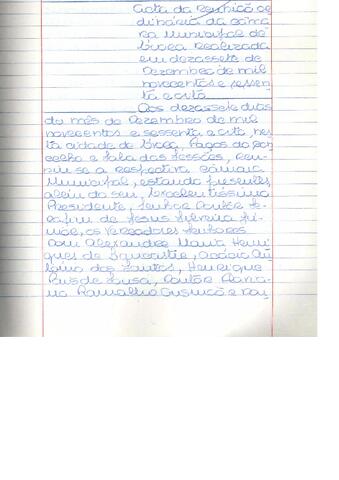 Acta da reunião or
dinária da câma
ra Municipal de
realizada
em dezassete de
Dezembro de mil
novecentos e sessen
ta e oito
Aos dezassete dias
do mês de Dezembro de mil
novecentos e sessenta e oito, nes
ta cidade de Paços do con
celho e sala das sessões, reu-
niu-se a respectiva câmara
Municipal, estando presentes,
além do seu, Excelentíssimo
Presidente, Senhor Doutor Se
rafim de Jesus Silveira jú-
nior, os Vereadores Senhores
Dom Alexandre Maria Henri
ques de Acácio An
tónio dos Santos, Henrique
Luís de Sousa, Doutor
Ramalho Gusmão e